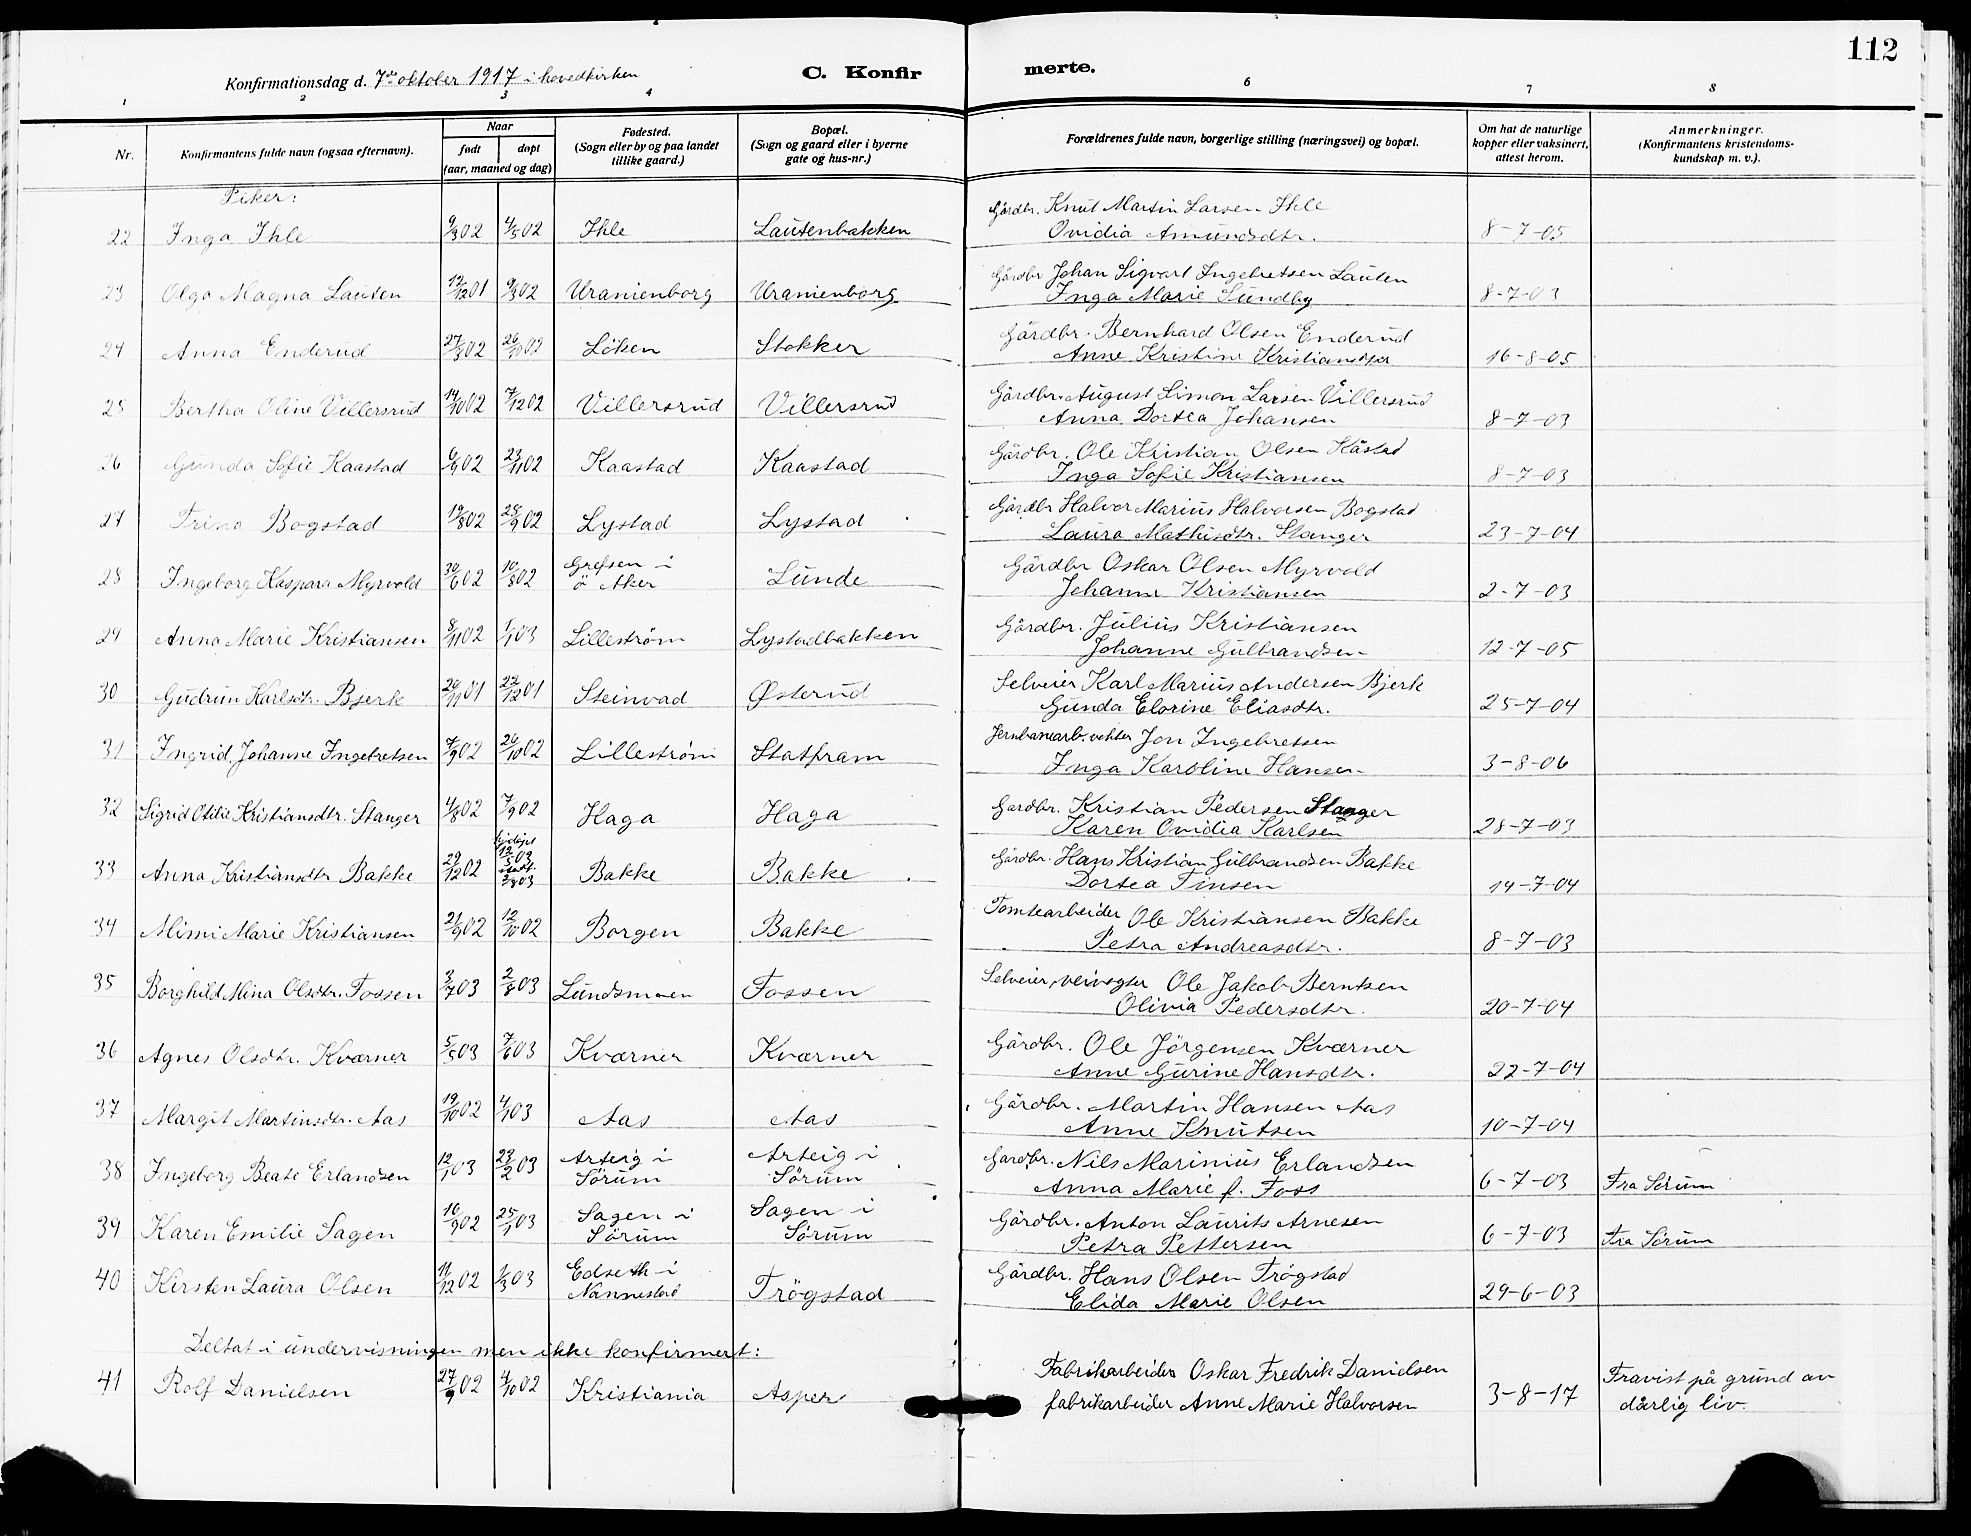 112
Konfirmationsdag d. 7de oktober 1917 i hovedkirken
C. Konfirmerte.
1 2 3 4 6 7 8
Nr.
Konfirmantens fulde navn (ogsaa efternavn).
Naar
født
døpt
(aar, maaned og dag)
Fødested.
(Sogn eller by og paa landet
tillike gaard.)
Bopæl.
(Sogn og gaard eller i byerne
gate og hus-nr.)
Forældrenes fulde navn, borgerlige stilling (næringsvei) og bopæl.
Om hat de naturlige
kopper eller vaksinert,
attest herom.
Anmerkninger.
(Konfirmantens kristendoms-
kundskap m. v.).
Piker:
Gårdbr. Knut Martin Larsen Ihle
22 Inga Ihle 9/3 02 4/5 02 Ihle Lautenbakken Ovidia Amundsdtr. 8-7-05
Gårdbr Johan Sigvart Ingebretsen Lauten
23 Olga Magna Lauten 12/12 01 9/3 02 Uranienborg Uranienborg Inga Marie Sundby 8-7-03
Gårdbr. Bernhard Olsen Enderud
24 Anna Enderud 27/3 02 26/10 02 Löken Stokker Anne Kristine 16-8-05
Gårdbr. August Simon Larsen Villersrud
25 Bertha Oline Villersrud 14/10 02 7/12 02 Villersrud Villersrud Anna Dortea Johansen 8-7-03
Gårdbr. Ole Kristian Olsen Kåstad
26 Gunda Sofie Kaastad 6/9 02 23/11 02 Kaastad Kaastad Inga Sofie Kristiansen 8-7-03
Gårdbr Halvor Marius Halvorsen Bogstad
27 Trina Bogstad 19/8 02 28/9 02 Lystad Lystad Laura Mathisdtr. Stanger 23-7-04
Gårdbr Oskar Olsen Myrvold
28 Ingeborg Kaspara Myrvold 30/6 02 10/8 02 Grefsen i ö Aker Lunde Johanne Kristiansen 2-7-03
Gårdbr. Julius Kristiansen
29 Anna Marie Kristiansen 8/11 02 1/1 03 Lilleström Lystadbakken Johanne Gulbrandsen 12-7-05
Selveier Karl Marius Andersen Bjerk
30 Gudrun Karlsdtr. Bjerk 20/11 01 22/12 01 Steinvad Østerud Gunda Elorine Eliasdtr. 25-7-04
Jernbanearb. vokter Jon Ingebretsen
31 Ingrid Johanne Ingebretsen 7/9 02 26/10 02 Lilleström Statfram Inga Karoline Hansen 3-8-06
Gardbr. Kristian Pedersen Stanger
32 Sigrid Otilie Kristiansdtr. Stanger 4/8 02 7/9 02 Haga Haga Karen Ovidia Karlsen 28-7-03
Gårdbr. Hans Kristian Gulbrandsen Bakke
33 Anna Kristiansdtr Bakke 29/12 02 hjdöpt 12/5 03 stadf. 2/8 03 Bakke Bakke Dortea Finsen 14-7-04
Tomtearbeider Ole Kristiansen Bakke
34 Mimi Marie Kristiansen 21/9 02 12/10 02 Borgen Bakke Petra Andreasdtr. 8-7-03
Selveier, veivogter Ole Jakob Berntsen
35 Borghild Mina Olsdtr. Fossen 3/7 03 2/8 03 Lundsmoen Fossen Olivia Pedersdtr. 20-7-04
Gårdbr. Ole Jörgensen Kværner
36 Agnes Olsdtr. Kværner 5/5 03 7/6 03 Kværner Kværner Anne Gurine Hansdtr. 22-7-04
Gårdbr. Martin Hansen Aas
37 Margit Martinsdtr. Aas 19/10 02 4/1 03 Aas Aas Anne Knutsen 10-7-04
Gardbr. Nils Marinius Erlandsen
38 Ingeborg Beate Erlandsen 12/1 03 23/2 03 Arteig i Sörum Arteig i Sörum Anna Marie f. Foss 6-7-03 Fra Sörum
Gårdbr. Anton Laurits Arnesen
39 Karen Emilie Sagen 16/9 02 25/1 03 Sagen i Sörum Sagen i Sörum Petra Pettersen 6-7-03 Fra Sörum
Gårdbr. Hans Olsen Trögstad
40 Kirsten Laura Olsen 11/12 02 1/3 03 Edseth i Nannestad Trögstad Elida Marie Olsen 29-6-03
Deltat i undervisningen men ikke konfirmert:
Fabrikarbeider Oskar Fredrik Danielsen
41 Rolf Danielsen 27/9 02 4/10 02 Kristiania Asper fabrikarbeider Anne Marie Halvorsen 3-8-17 Fravist på grund av
dårlig liv.